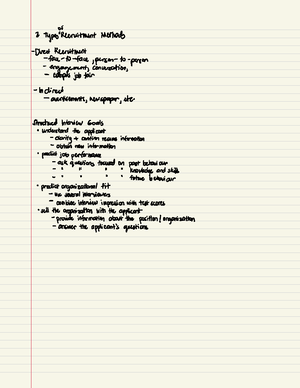 3 Types of Recruitment Methods
- Direct Recruitment
- face-to-face, person-to-person
- announcement, conversation,
- campus job fair
- Indirect
- advertisements, newspaper, etc
Structured Interview Goals
• understand the applicant
- clarify + confirm resume information
- obtain new information
• predict job performance
- ask questions focused on past behaviour
- " " " " knowledge and skills
- " " " " future behaviour
• predict organizational fit
- use several interviewers
- combine interview impression with test scores
• sell the organization with the applicant
- provide information about the position/organization
- answer the applicant's questions